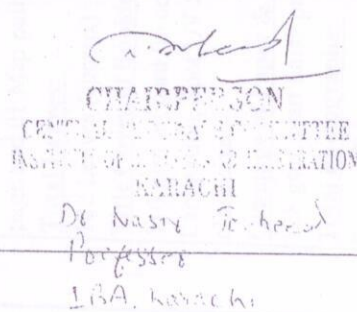 CHAIRPERSON
CENTRAL COMMITTEE
INSTITUTE OF BUSINESS ADMINISTRATION
KARACHI
Dr Nasir Touheed
Professor
IBA, Karachi